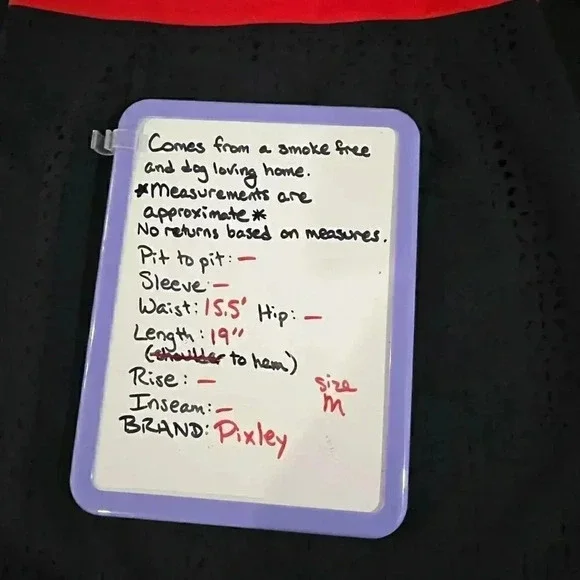 Comes from a smoke free
and dog loving home.
*Measurements are
approximate*
No returns based on measures.
Pit to pit: —
Sleeve: —
Waist: 15.5' Hip: —
Length: 19"
(shoulder to hem)
Rise: —
size
Inseam: —
M
BRAND: Pixley